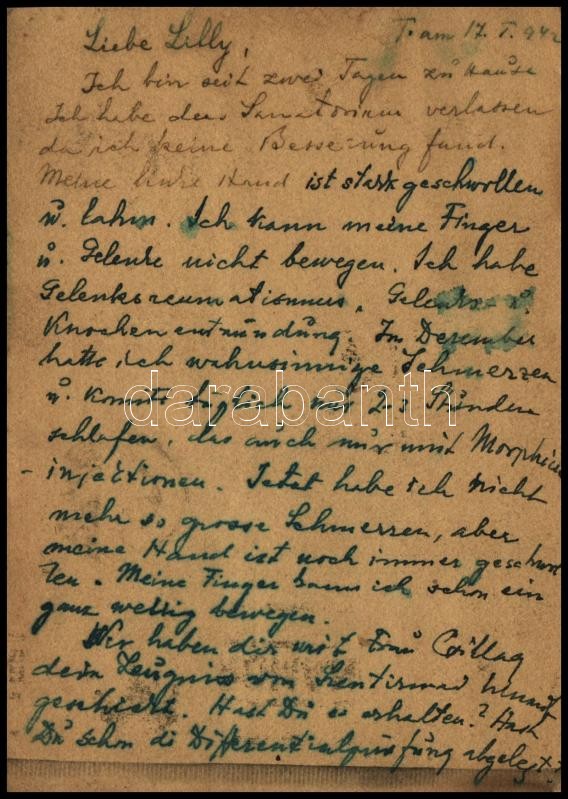 T. am 17. I. 942
Liebe Lilly,
Ich bin seit zwei Tagen zu Hause
Ich habe das Sanatorium verlassen
da ich keine Besserung fand.
Meine linke Hand ist stark geschwollen
u. lahm. Ich kann meine Finger
u. Gelenke nicht bewegen. Ich habe
Gelenksreumatismus, Gelenks- u.
Knochenentzündung. Im Dezember
hatte ich wahnsinnige Schmerzen
u. konnte täglich nur 2-3 Stunden
darabanth
schlafen, das auch nur mit Morphium
- injectionen. Jetzt habe ich nicht
mehr so grosse Schmerzen, aber
meine Hand ist noch immer geschwol
len. Meine Finger kann ich schon ein
ganz wenig bewegen.
Wir haben dir mit Frau Csillag
dein Zeugniss von
geschickt. Hast Du es erhalten? Hast
Du schon die Differentialprüfung abgelegt?